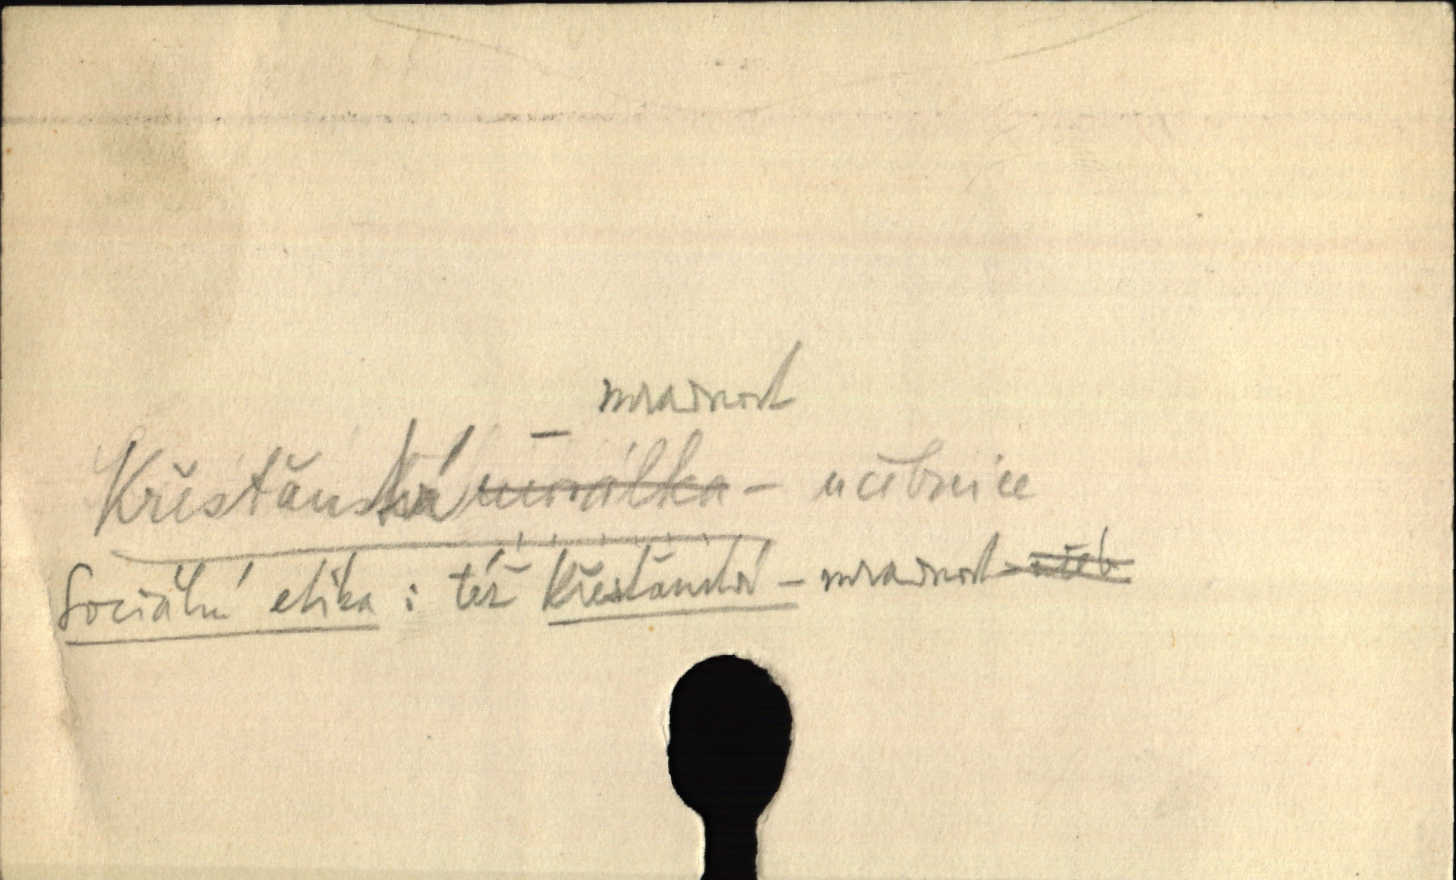 mravnost
Křesťanská – morálka – učebnice
Sociální etika : též Křesťanská – mravnost – učeb